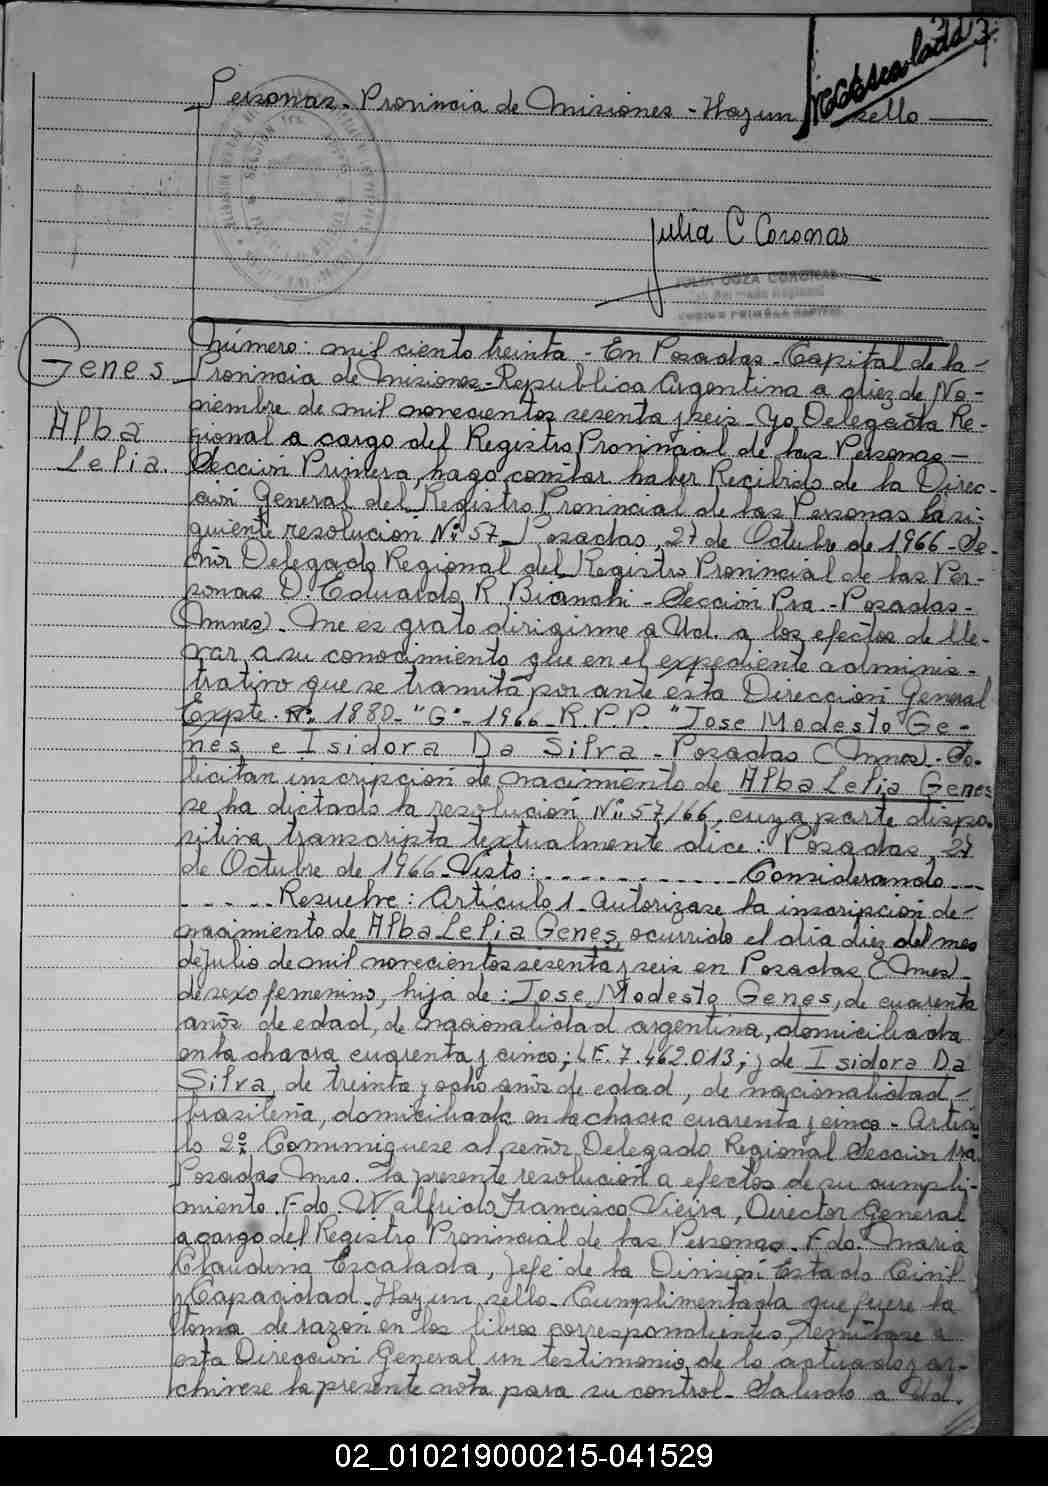 Personas - Provincia de Misiones - Hay un sello
Julia C Coronas
JULIA OGZA CORONAS
Número: mil ciento treinta - En Posadas - Capital de la
Genes
Provincia de Misiones - Republica Argentina a diez de No-
viembre de mil novecientos sesenta y seis - Yo Delegada Re-
Alba
gional a cargo del Registro Provincial de las Personas -
Lelia.
Sección Primera, hago constar haber Recibido de la Direc-
ción General del Registro Provincial de las Personas la si-
guiente resolución Nº: 57 - Posadas, 27 de Octubre de 1966 - Se-
ñor Delegado Regional del Registro Provincial de las Per-
sonas D. Eduardo R. Bianchi - Sección Pra - Posadas -
(Mnes) - Me es grato dirigirme a Ud. a los efectos de lle-
var a su conocimiento que en el expediente adminis-
trativo que se tramita por ante esta Dirección General
Expte. Nº: 1880 - "G" - 1966 - R.P.P. "Jose Modesto Ge-
nes e Isidora Da Silva - Posadas (Mnes) - So-
licitan inscripción de nacimiento de Alba Lelia Genes
se ha dictado la resolución Nº: 57/66, cuya parte dispo-
sitiva transcripta textualmente dice: Posadas, 27
de Octubre de 1966 - Visto: - - - - - - - - - - Considerando - - -
- - - - - Resuelve: Artículo 1 - Autorizase la inscripción de -
nacimiento de Alba Lelia Genes, ocurrido el día diez del mes
de Julio de mil novecientos sesenta y seis en Posadas (Mnes) -
de sexo femenino, hija de: Jose Modesto Genes, de cuarenta
años de edad, de nacionalidad argentina, domiciliada
en la chacra cuarenta y cinco; L.E. 7.462.013; y de Isidora Da
Silva, de treinta y ocho años de edad, de nacionalidad -
brasileña, domiciliada en la chacra cuarenta y cinco - Artícu
lo 2º: Comuniquese al señor Delegado Regional Sección 1ra
Posadas Mnes. la presente resolución a efectos de su cumpli-
miento. Fdo. Walfrido Francisco Vieira, Director General
a cargo del Registro Provincial de las Personas. Fdo. Maria
Claudina Escalada, Jefe de la División Estado Civil
y Capacidad. Hay un sello. Cumplimentada que fuere la
toma de razón en los libros correspondientes, remitase a
esta Dirección General un testimonio de lo actuado y ar-
chivese la presente nota para su control - Saludo a Ud.
02_010219000215-041529